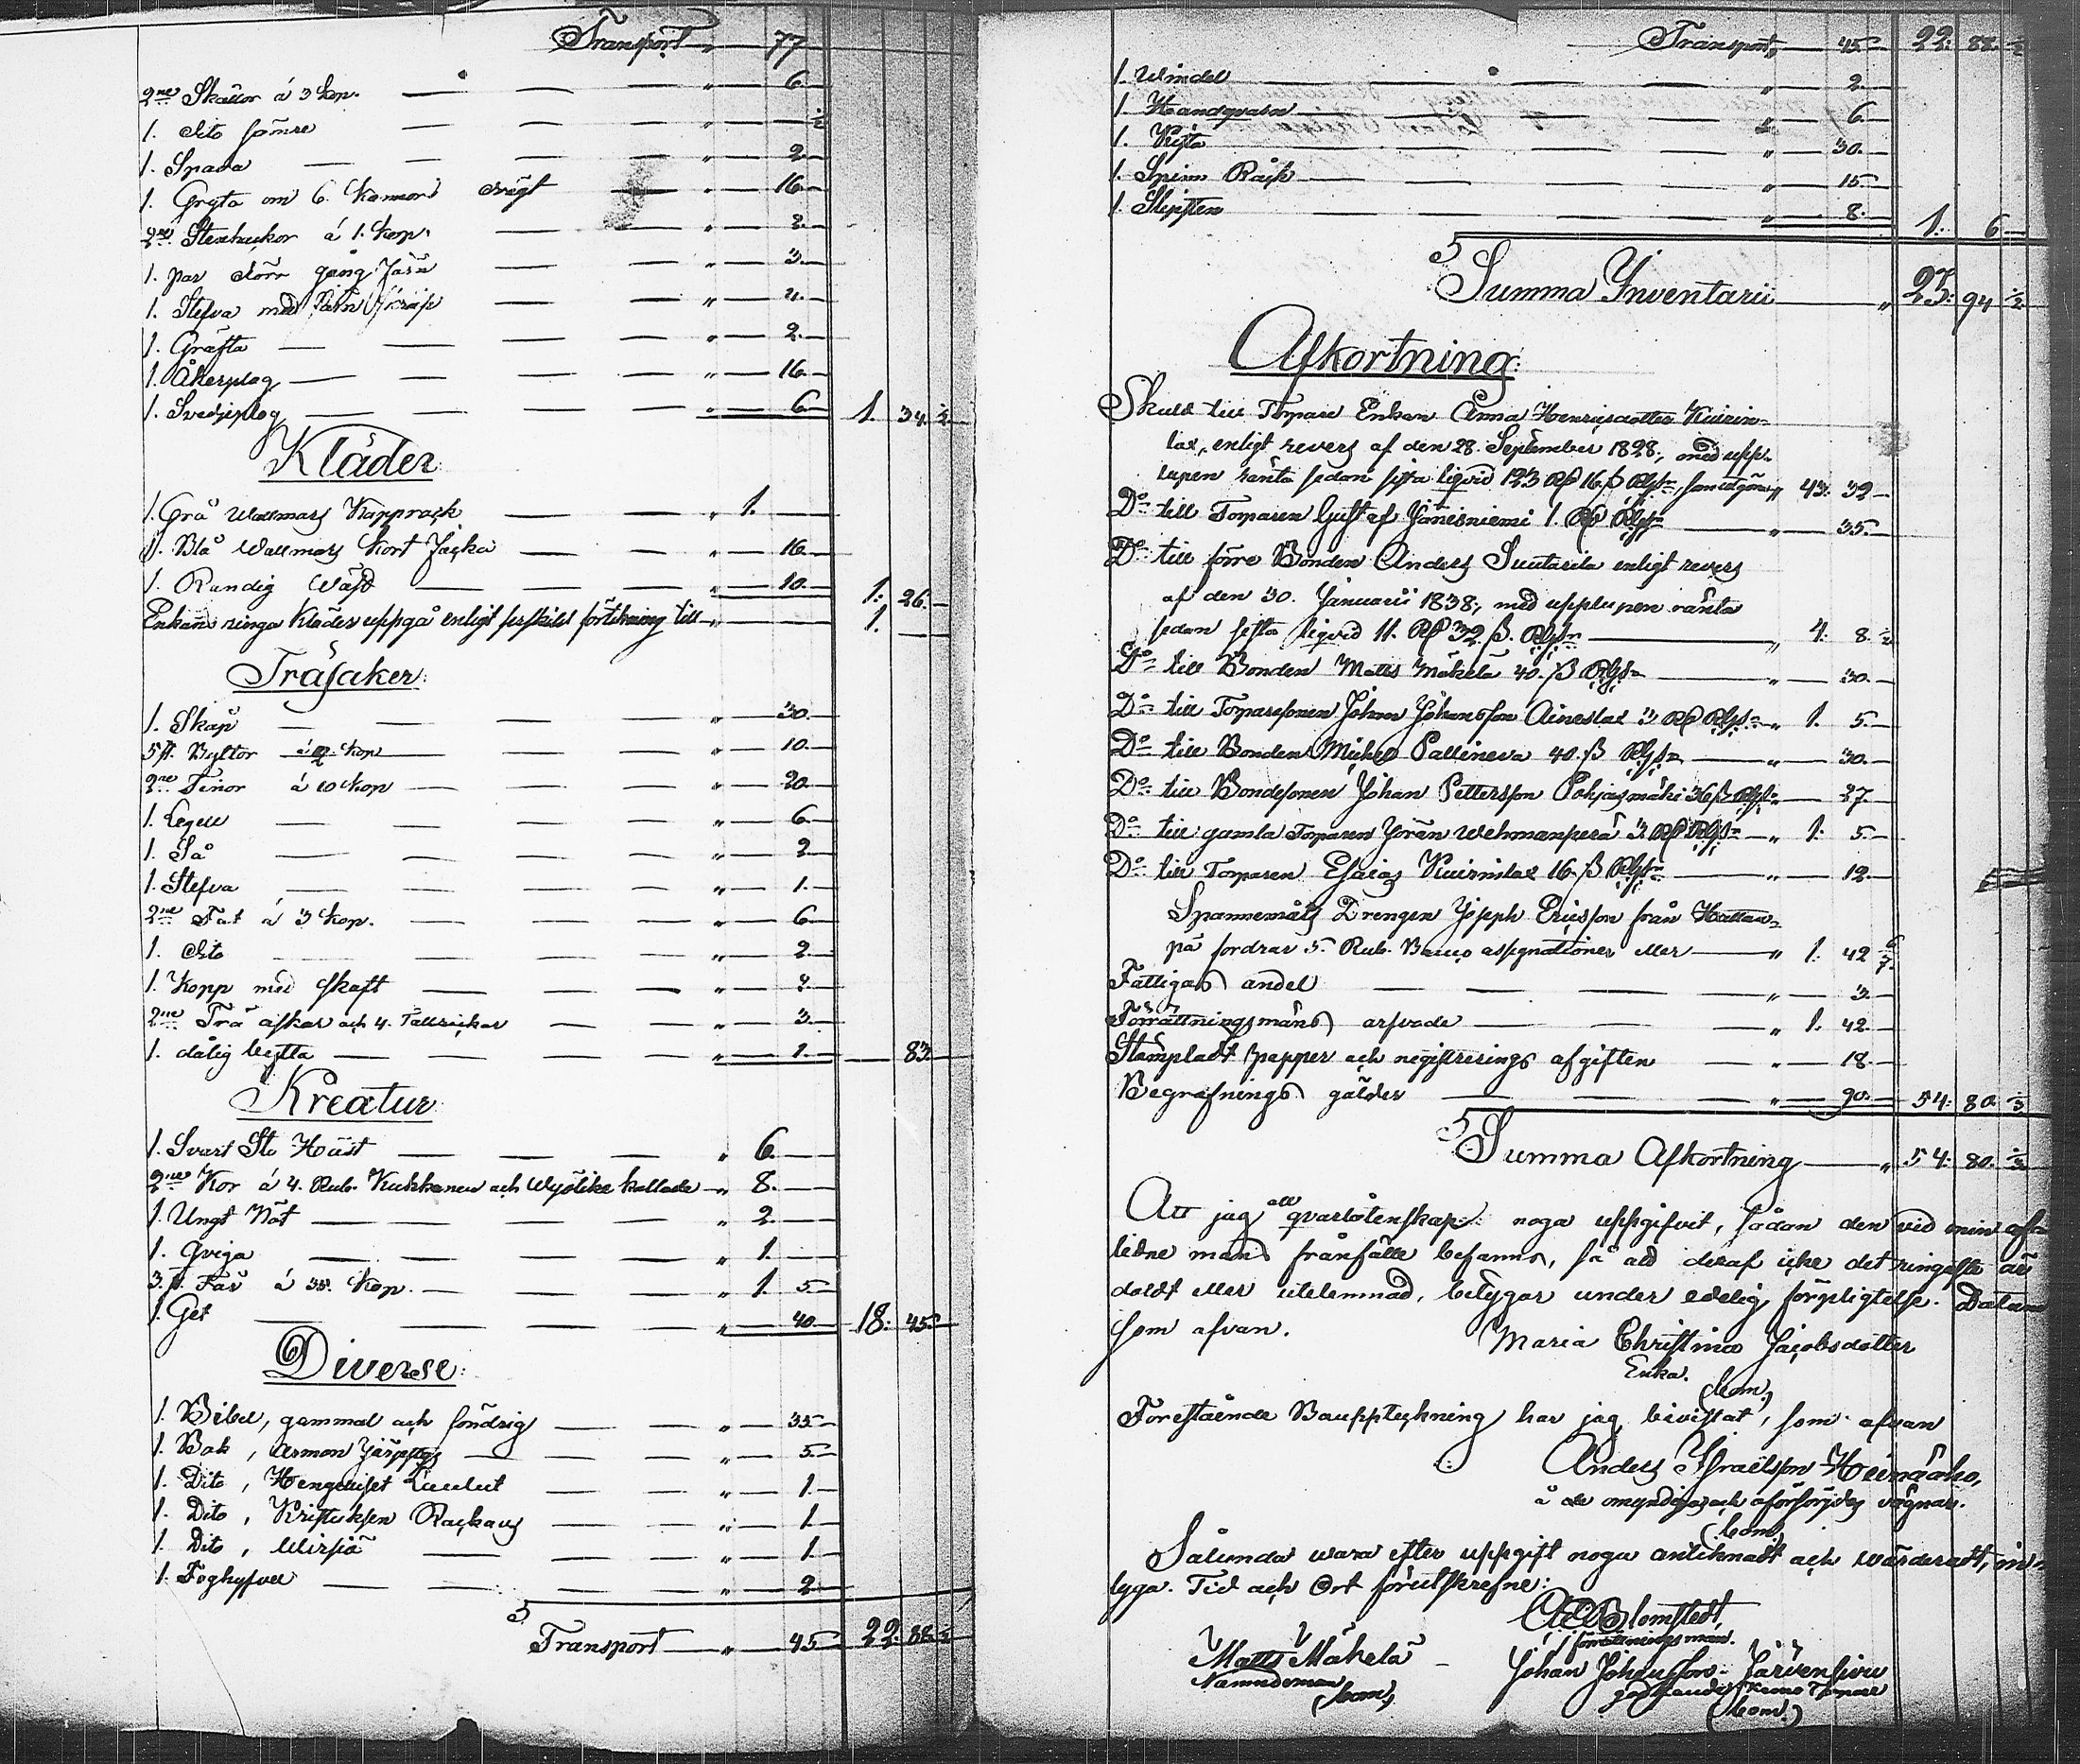 Transport " 77
2ne Skålior á 3 kop. " 6.
1. dito sämre " ½
1. Spada " 2
1. Gryta om 6. Kannors " 16
2ne Stenhackor á 1. kop. " 2.
1. par dörr gång Järn " 3.
1. Stefva med " 4.
1. Gräfta " 2.
1. Åkerplog " 16.
1. Svedjeplog " 6 1. 34. ½
Kläder:
1. Grå Wallmars Kapprock " 1.
1. Blå Wallmars kort Jacka " 16
1. Randig Wäst " 10. 1: 26.
Enkans ringa Kläder uppgå enligt serskild förtekning till " 1.
Träsaker:
1. Skåp " 30.
5 st. Byttor á 2 kop " 10.
2ne Tinor á 10 kop " 20.
1. Legell " 6.
1. Så " 2
1. Stefva " 1.
2ne Fat á 3 kop. " 6
1. dito " 2.
1. Kopp med skaft " 2.
2ne Trä askar och 4. Tallrickar " 3.
1. dålig bytta " 1. 83.
Kreatur:
1. Svart Sto Häst " 6.
2ne Kor á 4. Rub. Kukkanen och Wyötike kallade " 8.
1. Ungt Nöt " 2.
1. Qviga " 1.
3. st. Får á 35. kop. " 1. 5
1. Get " 40. 18. 45.
Diverse:
1. Bibel, gammal och söndrig " 35
1. Bok, Armon " 5.
1. Dito, Hengeliset Laulut " 1.
1. Dito, " 1.
1. Dito, Wirsiä " 1.
1. Foghyfvel " 2
Transport " 45 22. 88. ½
Transport " 45 22: 88. ½
1. Windel " 2.
1. Handqvarn " 6.
1. Kista " 30.
1. Spinn Råck " 15.
1. Slipsten " 8. 1. 6.
Summa Inventarii " 23: 94 ½
Afkortning:
Skuld till Torpare Enkan Anna Henricsdotter Kuirin-
lax, enligt revers af den 28. September 1828, med upp-
lupen ränta sedan sista liqvid 123 Rd 16 ß Rgs, som utgöra " 43: 32
Do till Torparen Gustaf Jänisniemi 1. Rd Rgs " 35.
Do till förre Bonden Anders Suutarila enligt revers
af den 30. Januarii 1838, med upplupen ränta
sedan sista liqvid 11. Rd 32. ß. Rgs " 4: 8. ½
Do till Bonden Matts Mäkelä 40. ß Rgs " 30.
Do till Torparesonen Johan Johansson 3 Rd Rgs " 1. 5.
Do till Bonden Mickel Pallineva 40. ß Rgs " 30.
Do till Bondesonen Johan Pettersson Pohjasmäki 36 ß Rgs " 27.
Do till gamla Torparen Jöran Wehmanperä 3 Rd Rgs " 1: 5.
Do till Torparen Esaias Kuirinlax 16. ß Rgs " 12.
Spannemåls Drengen Joseph Ericsson från Kattan-
pä fordrar 5. Rub. Banco assignationer eller " 1. 42 6/7
Fattigas andel " 3.
Förrättningsmäns arfvode " 1. 42.
Stämpladt papper och registrerings afgiften " 18.
Begrafnings gälder " 90. 54: 80. ⅓
Summa Afkortning " 54: 80. ⅓
Att jag all qvarlåtenskap noga uppgifvit, sådan den vid min afle
ledne mans frånfälle befanns, så att deraf icke det ringaste är
doldt eller utelemnad, betygar under edelig förpligtelse. Datum
som ofvan.
Maria Christina Jacobsdotter
Enka.
(bom.)
Förestående Bouppteckning har jag bevistat, som ofvan
Anders Israelsson Heinäaho,
å de omyndiges och oförsörjdes vägnar.
(bom.)
Sålunda wara efter uppgift noga antecknadt och wärderadt,
tyga. Tid och Ort förutskrefne:
Blomstedt,
förrättningsman.
Matts Mäkelä
Nämndeman
(bom.)
Johan Johansson Järvensivu
Torpare
(bom.)